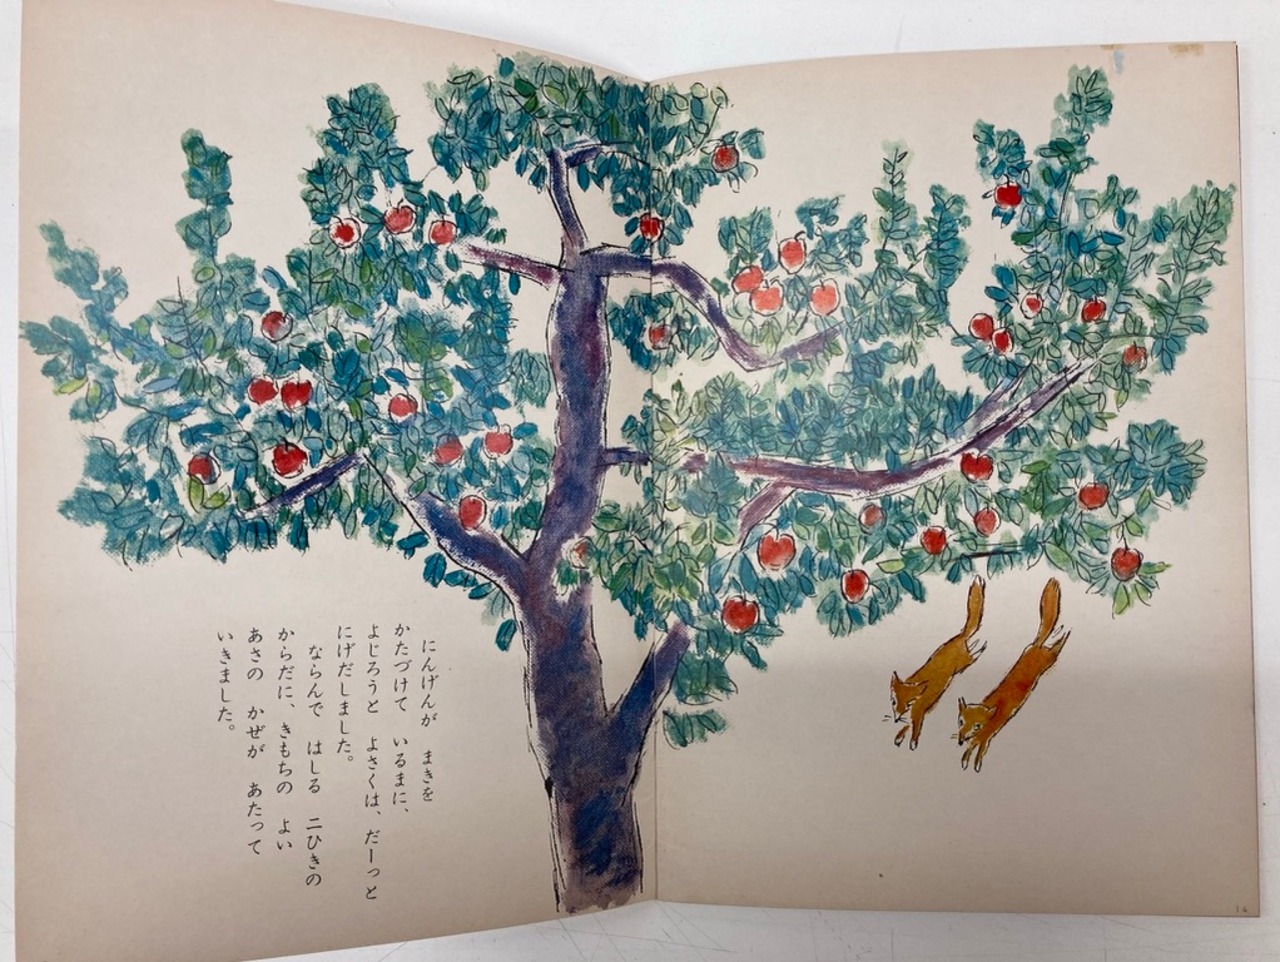 にんげんが　まきを
かたづけて　いるまに、
よじろうと　よさくは、だーっと
にげだしました。
ならんで　はしる　二ひきの
からだに、きもちの　よい
あさの　かぜが　あたって
いきました。
14